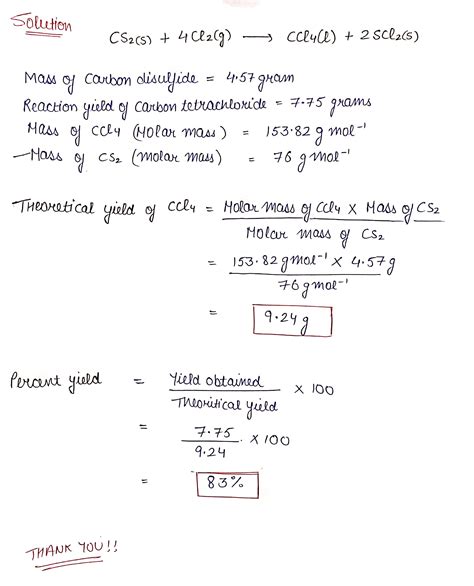 Solution
CS₂(s) + 4Cl₂(g) ⟶ CCl₄(l) + 2SCl₂(s)
Mass of Carbon disulfide = 4.57 gram
Reaction yield of Carbon tetrachloride = 7.75 grams
Mass of CCl₄ (Molar mass) = 153.82 g mol⁻¹
Mass of CS₂ (molar mass) = 76 g mol⁻¹
Theoretical yield of CCl₄ = Molar mass of CCl₄ × Mass of CS₂
Molar mass of CS₂
= 153.82 g mol⁻¹ × 4.57 g
76 g mol⁻¹
= 9.24 g
Percent yield = Yield obtained × 100
Theoritical yield
= 7.75 × 100
9.24
= 83%
THANK YOU!!